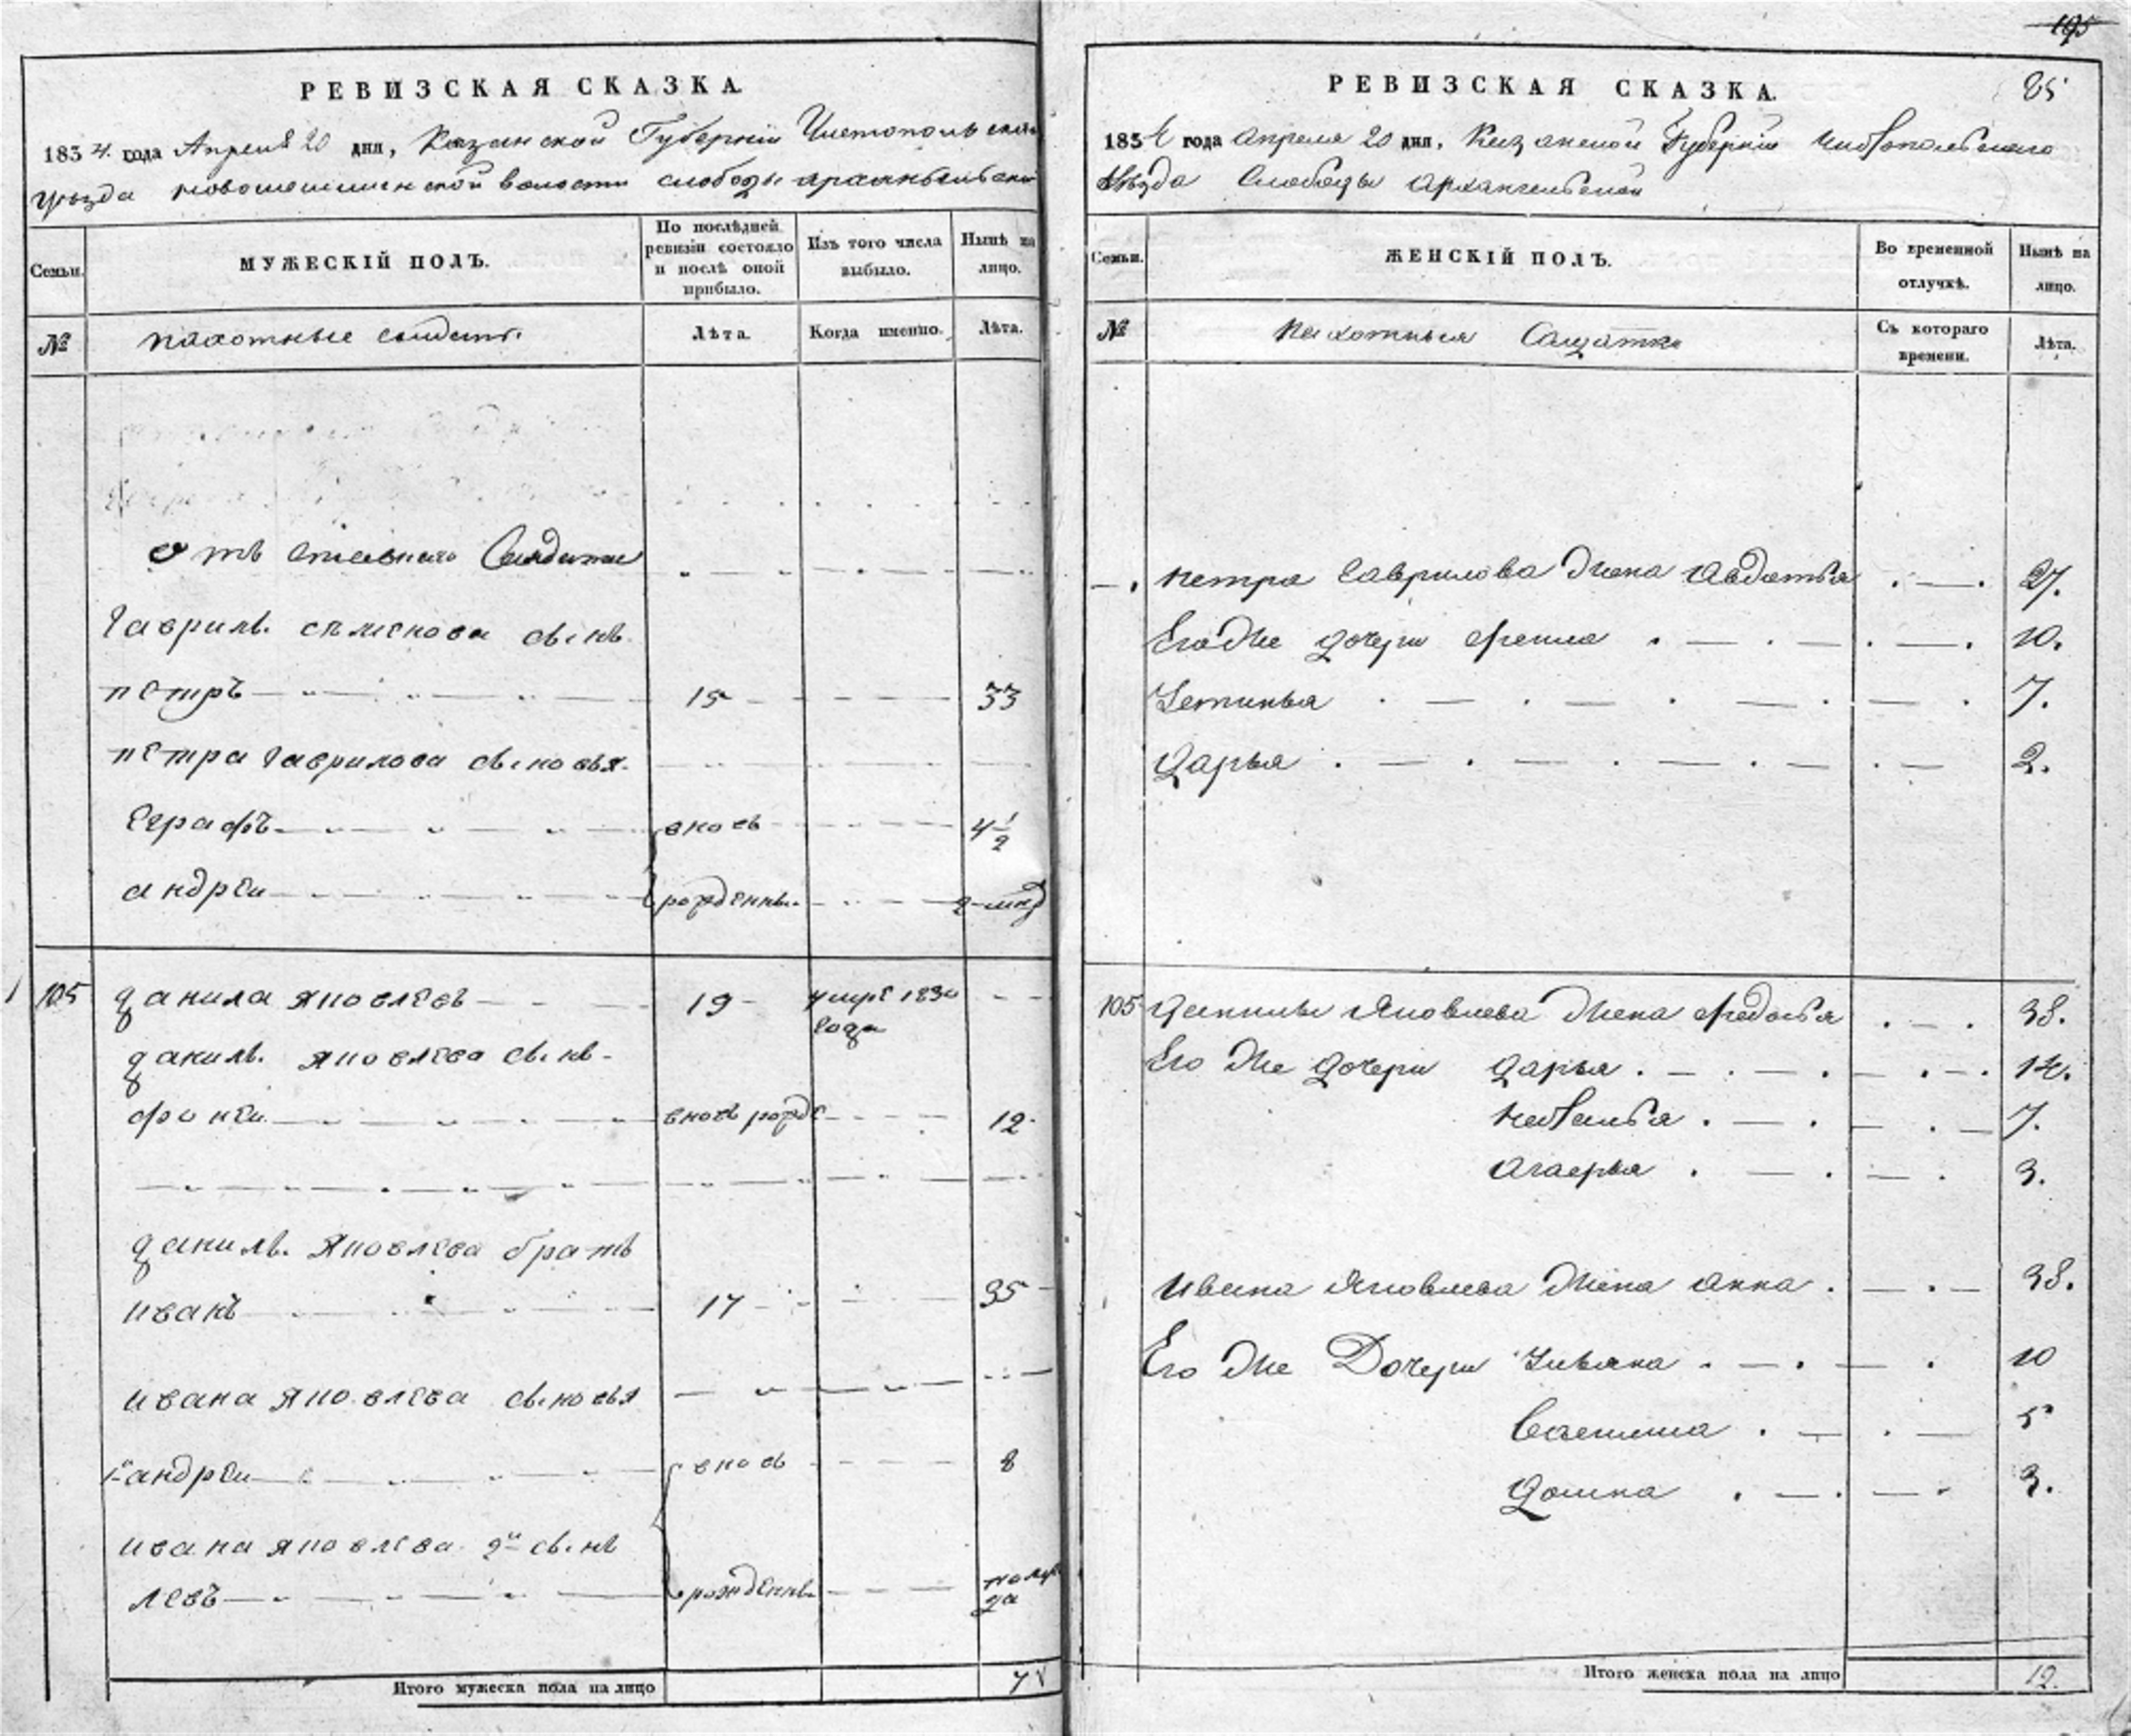 РЕВИЗСКАЯ СКАЗКА.
1834. года Апреля 20 дня, Казанской Губернии Чистопольской
уезда новошешминской волости слободы архангельской
Семьи.
МУЖЕСКІЙ ПОЛЪ.
По послѣдней ревизіи состояло и послѣ оной прибыло.
Изъ того числа выбыло.
Нынѣ на лицо.
№
пахотные солдаты.
Лѣта.
Когда именно.
Лѣта.
отъ Солдата
Гаврилы семенова сынъ
петръ 15 33
петра Гаврилова сыновья
Еграфъ вновь 4 1/2
андреи рожденны
105 данила яковлевъ 19 умре 1830 года
данилы яковлева сынъ
фокеи вновь рожде 12
данилы яковлева братъ
иванъ 17 35
ивана яковлева сыновья
1й андреи вновь 8
ивана яковлева 2й сынъ
левъ рожденны полуго да
Итого мужеска пола на лицо 7
195
РЕВИЗСКАЯ СКАЗКА. 85
1834 года апреля 20 дня, Казанской Губернии Чистопольского
уезда Слободы Архангельской
Семьи.
ЖЕНСКІЙ ПОЛЪ.
Во временной отлучкѣ.
Нынѣ на лицо.
№
Пахотныя Солдатки
Съ котораго времени.
Лѣта.
петра Гаврилова жена Авдотья 27.
Его же дочери Фекла 10.
Устинья 7.
Дарья 2.
105 Данилы Яковлева жена Федосья 38.
Его же дочери Дарья 14.
Наталья 7.
Агаерья 3.
Ивана Яковлева жена Анна 38.
Его же Дочери Ульяна 10
Василиса 5
Домна 3.
Итого женска пола на лицо 12.